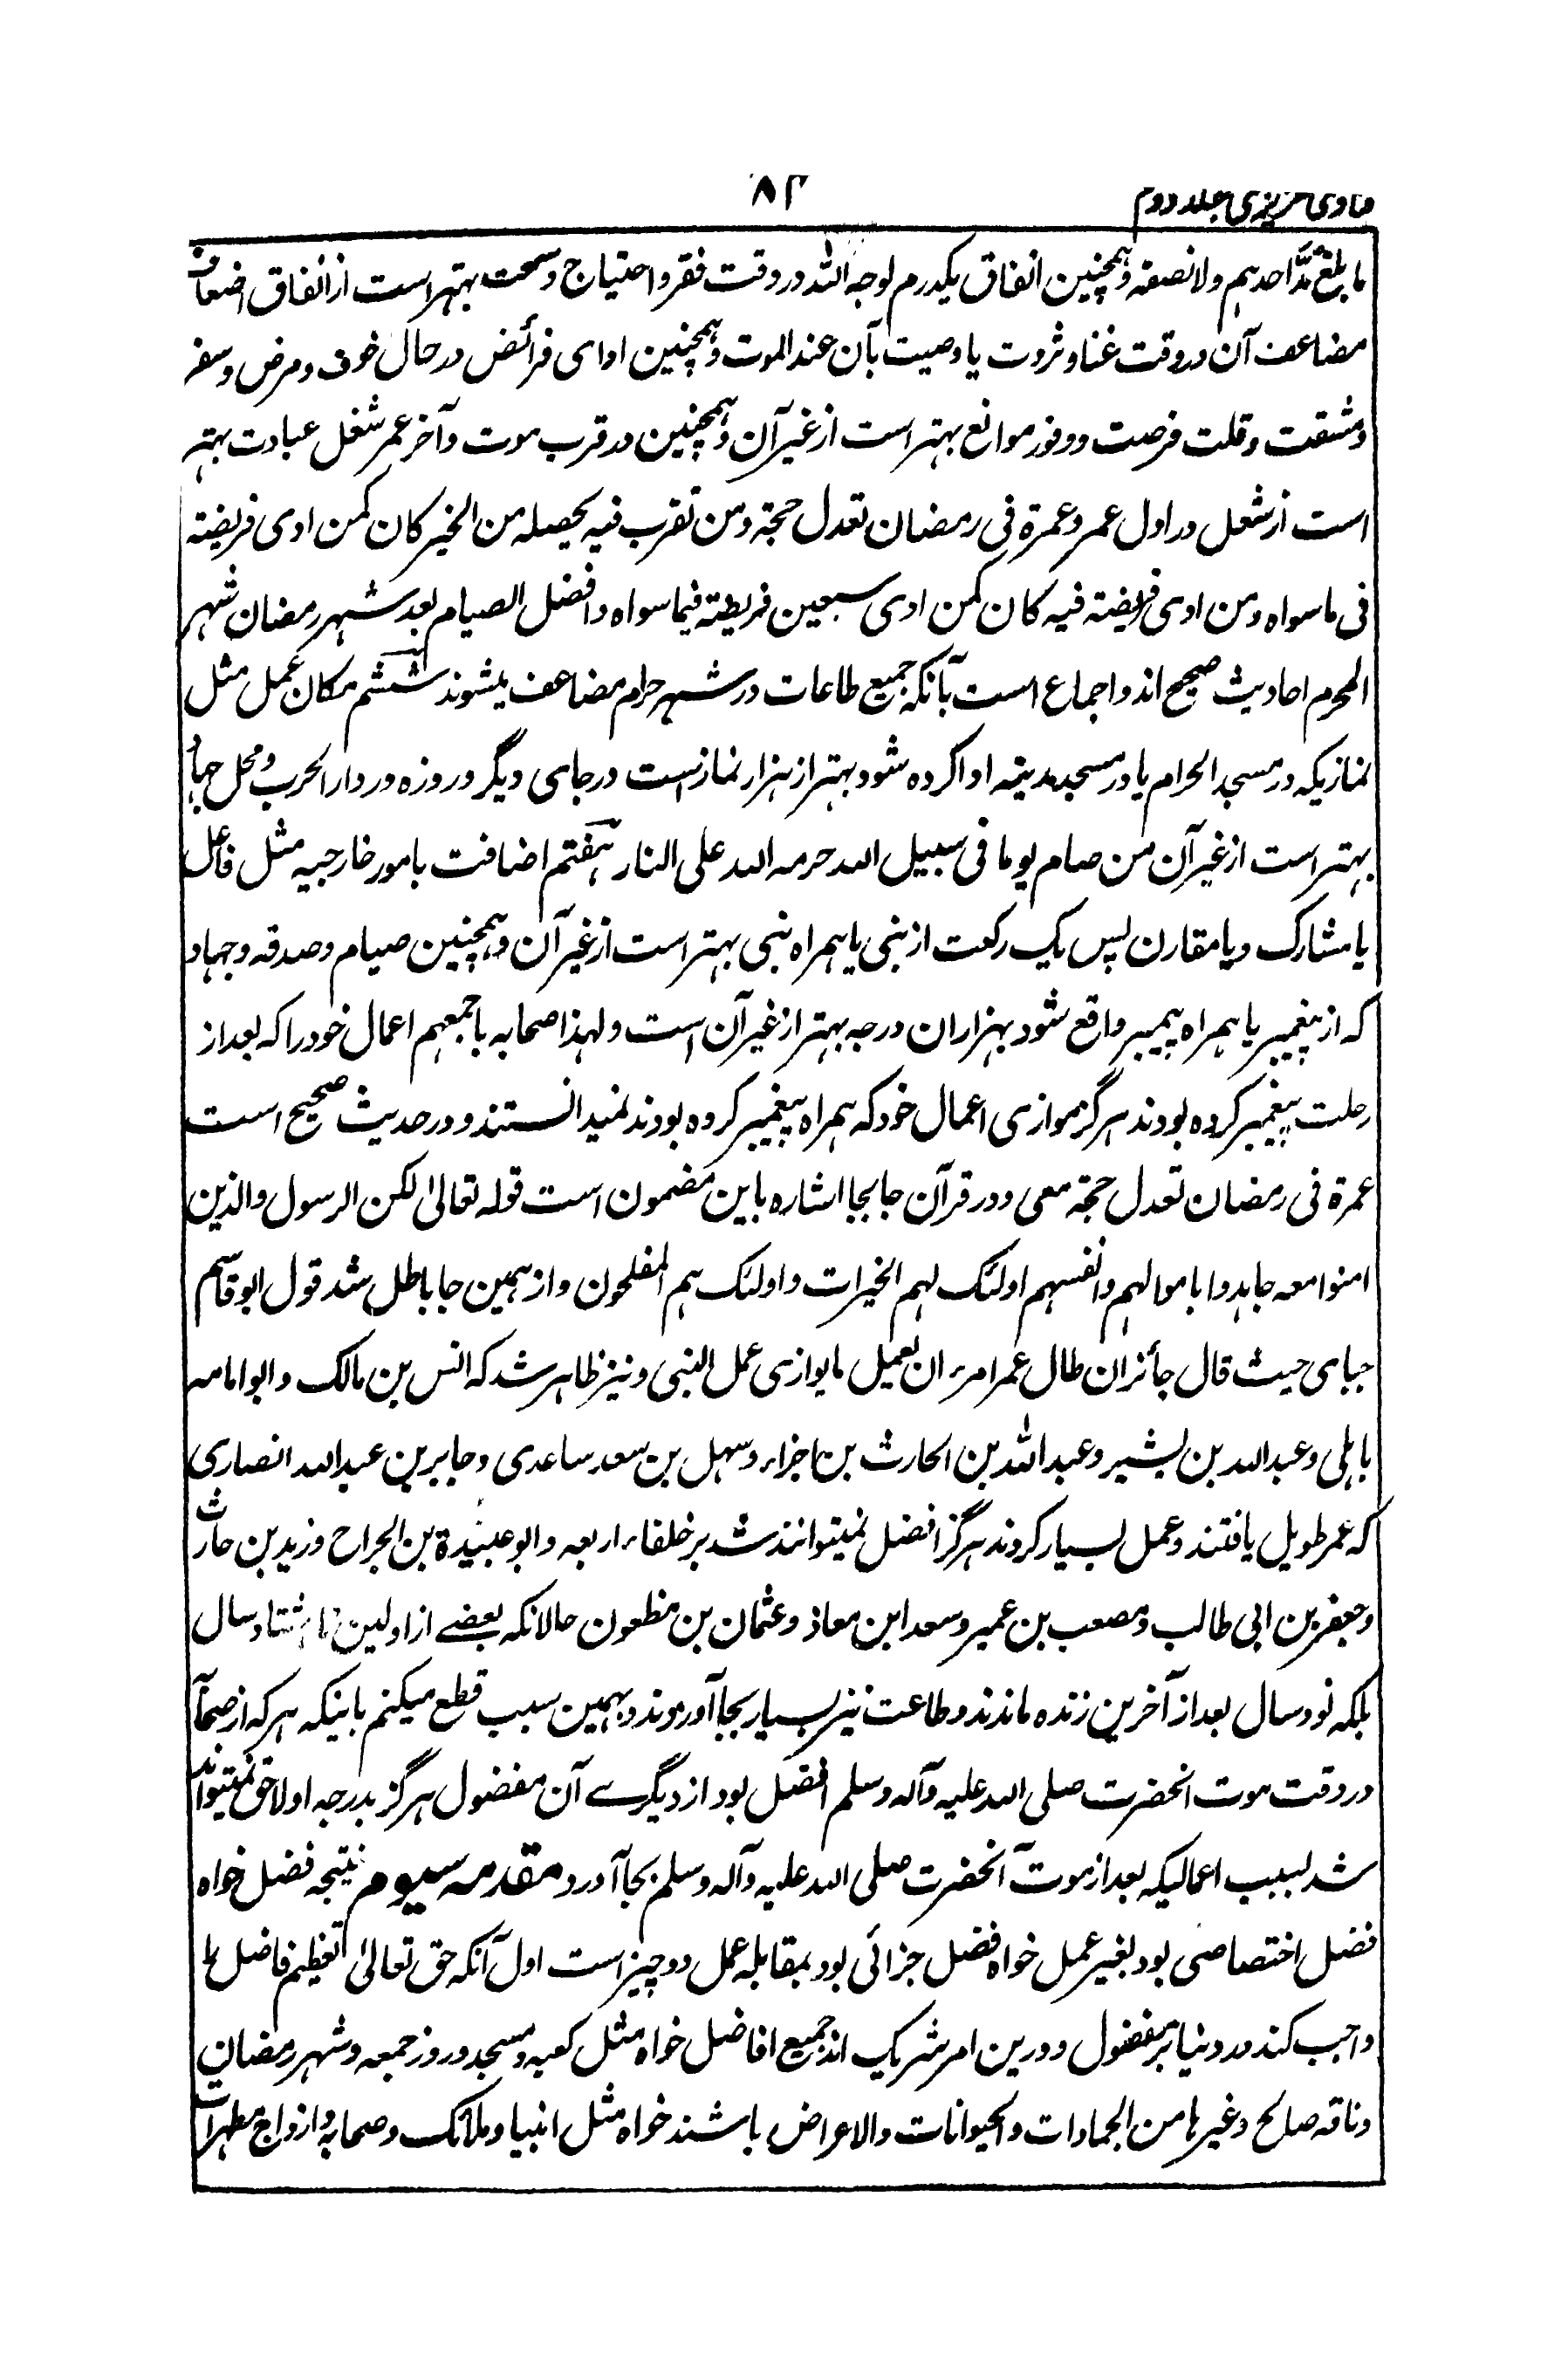 فتاوی عزیزی جلد دوم
۸۲
ما بلغ مُدَّ احدہم ولا نصفہ و ہمچنین انفاق یکدرم لوجہ اللہ در وقت فقر و احتیاج و صحت بہتر است از انفاق اضعاف
مضاعف آن در وقت غنا و ثروت یا وصیت بآن عند الموت و ہمچنین ادای فرائض در حال خوف و مرض و سفر
و مشقت و قلت فرصت و وفور موانع بہتر است از غیر آن و ہمچنین در قرب موت و آخر عمر شغل عبادت بہتر
است از شغل در اول عمر و عمرۃ فی رمضان تعدل حجۃ و من تقرب فیہ بحصلہ من الخیر کان کمن ادی فریضتہ
فی ما سواہ و من ادی فریضتہ فیہ کان کمن ادی سبعین فریضتہ فیما سواہ و افضل الصیام بعد شہر رمضان شہر
المحرم احادیث صحیح اند و اجماع است بآنکہ جمیع طاعات در شہر حرام مضاعف میشوند ششم مکان عمل مثل
نمازیکہ در مسجد الحرام یا در مسجد مدینہ ادا کردہ شود بہتر از ہزار نماز است در جای دیگر و روزہ در دار الحرب و محل جہاد
بہتر است از غیر آن من صام یوما فی سبیل اللہ حرمہ اللہ علی النار ہفتم اضافت بامور خارجیہ مثل فاعل
یا مشارک و یا مقارن پس یک رکعت از نبی یا ہمراہ نبی بہتر است از غیر آن و ہمچنین صیام و صدقہ و جہاد
کہ از پیغمبر یا ہمراہ پیمبر واقع شود بہزاران درجہ بہتر از غیر آن است و لہذا صحابہ باجمعہم اعمال خود را کہ بعد از
رحلت پیغمبر کردہ بودند ہرگز موازی اعمال خود کہ ہمراہ پیغمبر کردہ بودند نمیدانستند و در حدیث صحیح است
عمرۃ فی رمضان تعدل حجۃ معی و در قرآن جا بجا اشارہ باین مضمون است قولہ تعالیٰ لکن الرسول والذین
امنوا معہ جاہدوا باموالہم وانفسہم اولئک لہم الخیرات و اولئک ہم المفلحون و از ہمین جا باطل شد قول ابو قاسم
جبای حیث قال جائز ان طال عمر امرء ان یعمل ما یوازی عمل النبی و نیز ظاہر شد کہ انس بن مالک و ابو امامہ
باہلی و عبد اللہ بن بشیر و عبد اللہ بن الحارث بن جزاء و سہل بن سعد ساعدی و جابر بن عبد اللہ انصاری
کہ عمر طویل یافتند و عمل بسیار کردند ہرگز افضل نمیتوانند شد بر خلفاء اربعہ و ابو عبیدۃ بن الجراح و زید بن حارث
و جعفر بن ابی طالب و مصعب بن عمیر و سعد ابن معاذ و عثمان بن مظعون حالانکہ بعضے از اولین تا ہشتاد سال
بلکہ نود سال بعد از آخرین زندہ ماندند و طاعت نیز بسیار بجا آوردند و بہمین سبب قطع میکنم باینکہ ہر کہ از صحابہ
در وقت موت انحضرت صلی اللہ علیہ وآلہ وسلم افضل بود از دیگرے آن مفضول ہرگز بدرجہ او لاحق نمیتواند
شد بسبب اعمالیکہ بعد از موت آنحضرت صلی اللہ علیہ وآلہ وسلم بجا آورد مقدمہ سیوم نتیجہ فضل خواہ
فضل اختصاصی بود بغیر عمل خواہ فضل جزائی بود بمقابلہ عمل دو چیز است اول آنکہ حق تعالیٰ تعظیم فاضل را
واجب کند در دنیا بر مفضول و درین امر شریک اند جمیع افاضل خواہ مثل کعبہ و مسجد و روز جمعہ و شہر رمضان
و ناقہ صالح و غیرہا من الجمادات والحیوانات والاعراض باشند خواہ مثل انبیا و ملائک و صحابہ و ازواج مطہرات